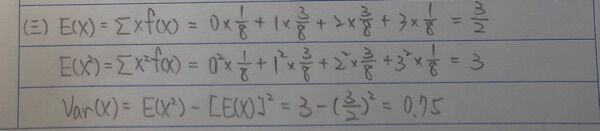 (三) E(X) = Σxf(x) = 0×1/8 + 1×3/8 + 2×3/8 + 3×1/8 = 3/2
E(X²) = Σx²f(x) = 0²×1/8 + 1²×3/8 + 2²×3/8 + 3²×1/8 = 3
Var(X) = E(X²) - [E(X)]² = 3 - (3/2)² = 0.75